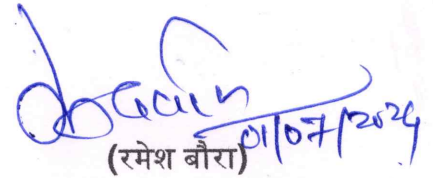 01/07/2024
(रमेश बौरा)